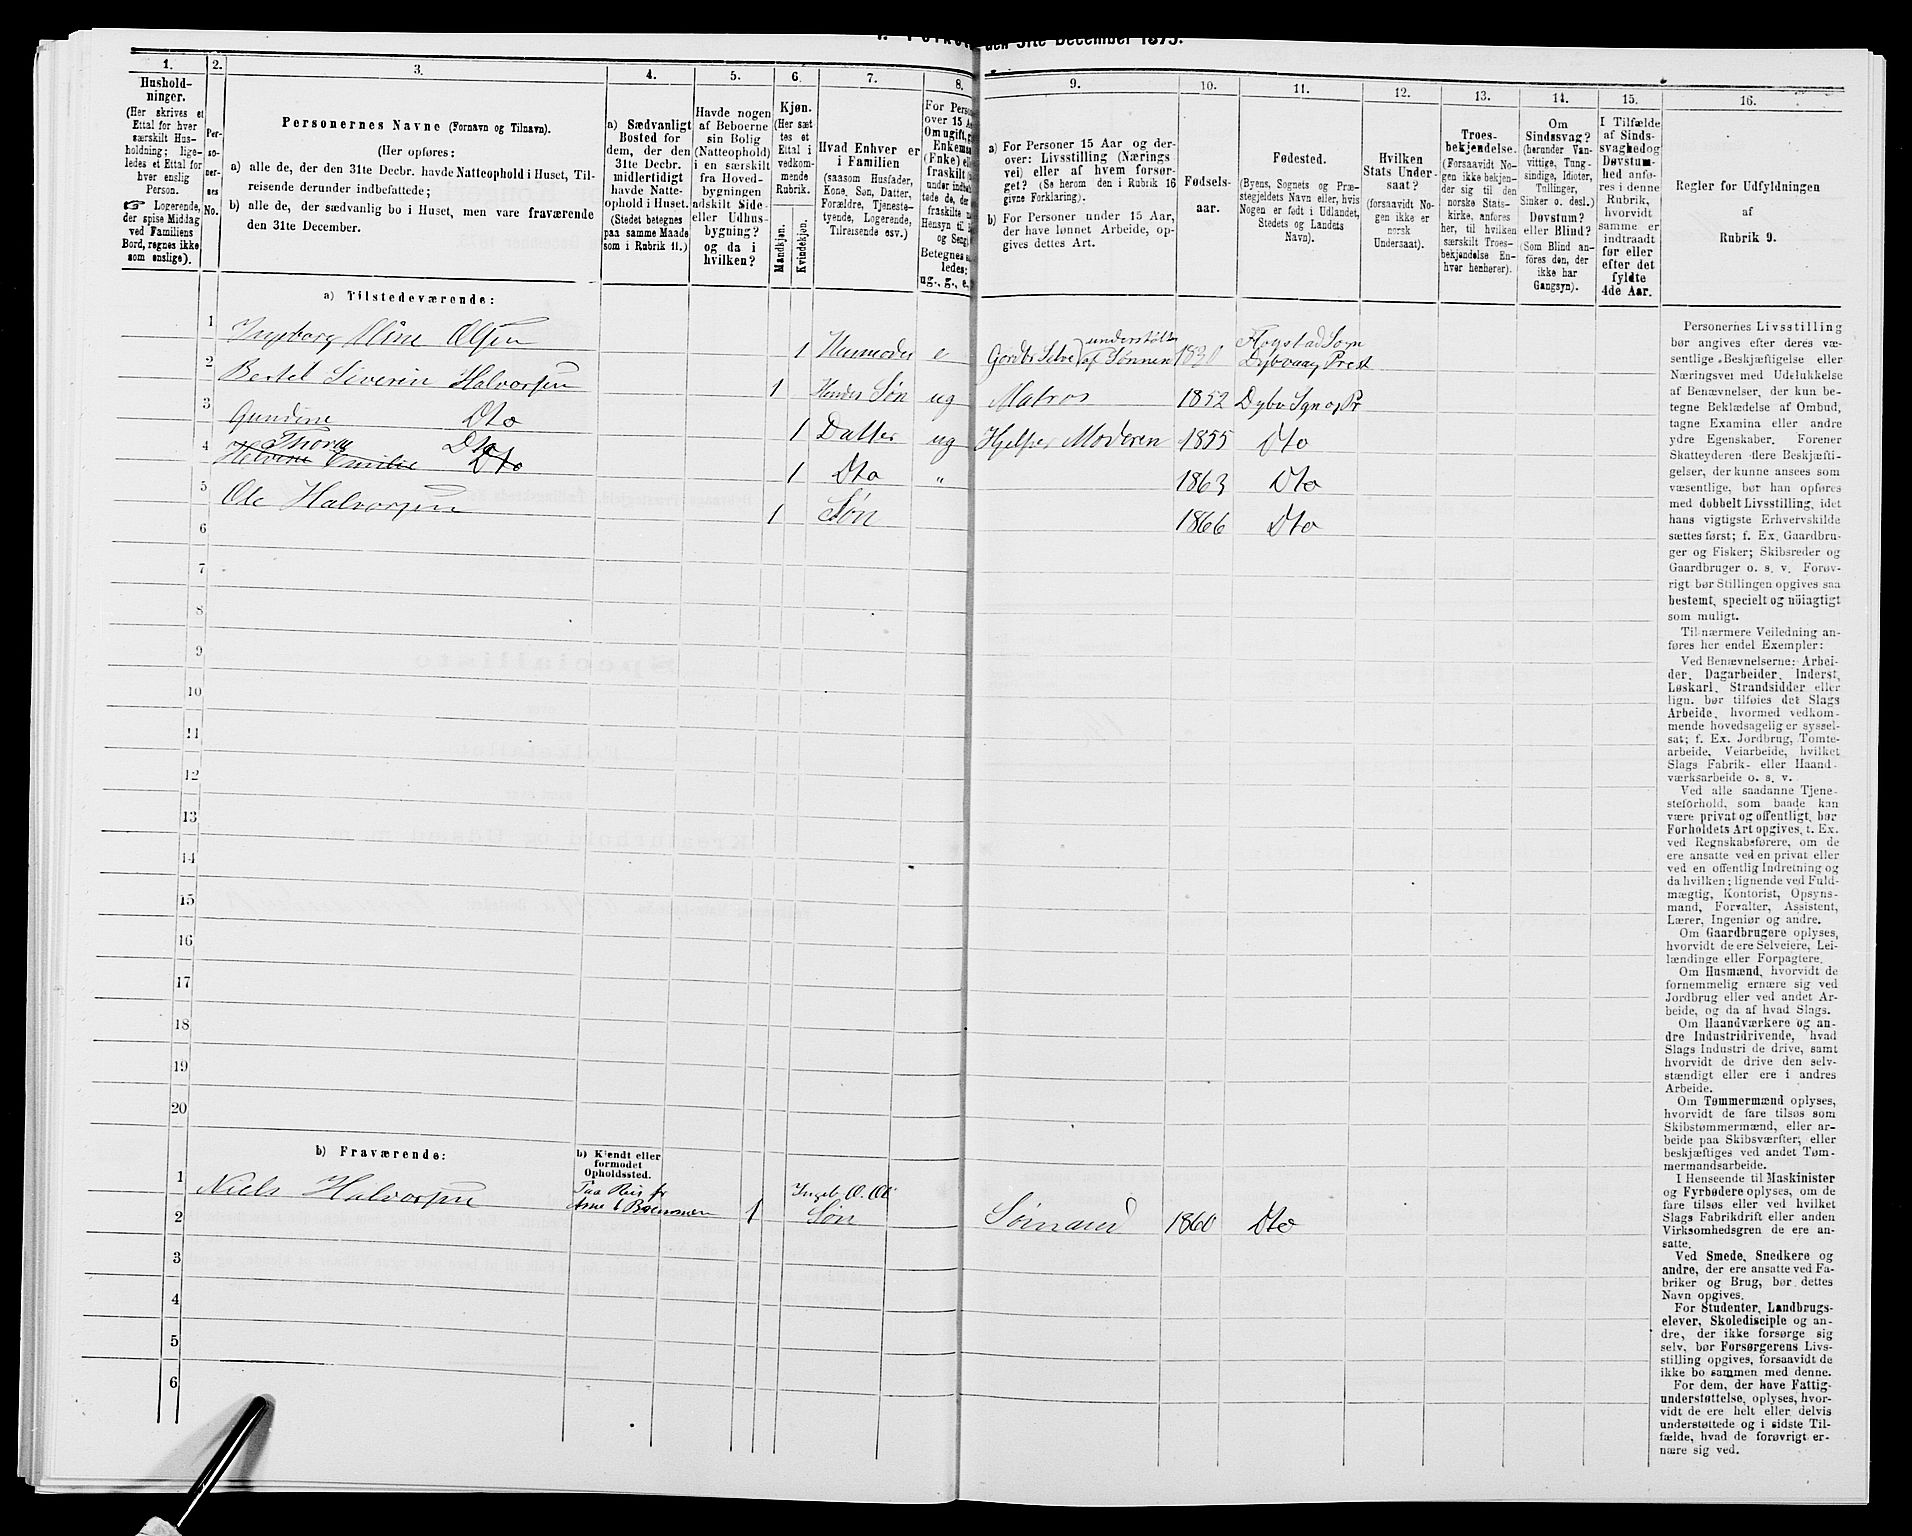 I. Folketal den 31te December 1875.
1. 2. 3. 4. 5. 6. 7. 8. 9. 10. 11. 12. 13. 14. 15. 16.
Hushold-
ninger.
(Her skrives et
Ettal for hver
særskilt Hus-
holdning; lige-
ledes et Ettal for
hver enslig
Person.
☞ Logerende,
der spise Middag
ved Familiens
Bord, regnes ikke
som enslige).
Per-
so-
ner-
nes
No.
Personernes Navne (Fornavn og Tilnavn).
(Her opføres:
a) alle de, der den 31te Decbr. havde Natteophold i Huset, Til-
reisende derunder indbefattede;
b) alle de, der sædvanlig bo i Huset, men vare fraværende
den 31te December.
a) Sædvanligt
Bosted for
dem, der den
31te Decbr.
midlertidigt
havde Natte-
ophold i Huset.
(Stedet betegnes
paa samme Maade
som i Rubrik 11.)
Havde nogen
af Beboerne
sin Bolig
(Natteophold)
i en særskilt
fra Hoved-
bygningen
adskilt Side-
eller Udhus-
bygning?
og da i
hvilken?
Kjøn.
(Her sæt-
tes et
Ettal i
vedkom-
mende
Rubrik.
Mandkjøn.
Kvindekjøn.
Hvad Enhver er
i Familien
(saasom Husfader,
Kone, Søn, Datter,
Forældre, Tjeneste-
tyende, Logerende,
Tilreisende osv.)
For Person
over 15 A
Om ugift, g
Enkema
(Enke) el
fraskilt
under indbe
tede de, de
fraskilte
Hensyn til
og Seng.
Betegnes s
ledes:
ug., g., e.,
a) For Personer 15 Aar og der-
over: Livsstilling (Nærings-
vei) eller af hvem forsør-
get? (Se herom den i Rubrik 16
givne Forklaring).
b) For Personer under 15 Aar,
der have lønnet Arbeide, op-
gives dettes Art.
Fødsels-
aar.
Fødested.
(Byens, Sognets og Præ-
stegjeldets Navn eller, hvis
Nogen er født i Udlandet,
Stedets og Landets
Navn).
Hvilken
Stats Under-
saat?
(forsaavidt No-
gen ikke er
norsk
Undersaat).
Troes-
bekjendelse.
(Forsaavidt No-
gen ikke bekjen-
der sig til den
norske Stats-
kirke, anføres
her, til hvilken
særskilt Troes-
bekjendelse En-
hver henhører).
Om
Sindssvag?
(herunder Van-
vittige, Tung-
sindige, Idioter,
Tullinger,
Sinker o. desl.)
Døvstum?
eller Blind?
(Som Blind an-
føres den, der
ikke har
Gangsyn).
I Tilfælde
af Sinds-
svaghed og
Døvstum-
hed anfø-
res i denne
Rubrik,
hvorvidt
samme er
indtraadt
før eller
efter det
fyldte
4de Aar.
Regler for Udfyldningen
af
Rubrik 9.
a) Tilstedeværende:
1 Ingeborg Aline Olsen 1 Husmoder e Gdbr Selve understøttes af Sønnen 1830 Flosta Sogn Dybvaag Prest
2 Bertel Severin Halvorsen 1 Hendes Søn ug Matros 1852 Dybv Sgn og Pr
3 Gundine Dto 1 Datter ug Hjelper Moderen 1855 Dto
4 Thora Dto
Helvine Emilie Dto 1 Dto " 1863 Dto
5 Ole Halvorsen 1 Søn 1866 Dto
6
7
8
9
10
11
12
13
14
15
16
17
18
19
20
b) Fraværende:
b) Kjendt eller
formodet
Opholdssted.
1 Niels Halvorsen Paa Reis fr 1 Ingeb. O. Søn Sømand 1860 Dto
2
3
4
5
6
Personernes Livsstilling
bør angives efter deres væ-
sentlige Beskjæftigelse eller
Næringsvei med Udelukkelse
af Benævnelser, der kun be-
tegne Beklædelse af Ombud,
tagne Examina eller andre
ydre Egenskaber. Forener
Skatteyderen flere Beskjæfti-
gelser, der kunne ansees som
væsentlige, bør han opføres
med dobbelt Livsstilling, idet
hans vigtigste Erhvervskilde
sættes først; f. Ex. Gaardbru-
ger og Fisker; Skibsreder og
Gaardbruger o. s. v. Forøv-
rigt bør Stillingen opgives saa
bestemt, specielt og nöiagtigt
som muligt.
Til nærmere Veiledning an-
føres her endel Exempler:
Ved Benævnelserne: Arbei-
der, Dagarbeider, Inderst,
Løskarl, Strandsidder eller
lign. bør tilføies det Slags
Arbeide, hvormed vedkom-
mende hovedsagelig er syssel-
sat; f. Ex. Jordbrug, Tomte-
arbeide, Veiarbeide, hvilket
Slags Fabrik- eller Haand-
værksarbeide o. s. v.
Ved alle saadanne Tjene-
steforhold, som baade kan
være privat og offentligt, bør
Forholdets Art opgives, t. Ex.
ved Regnskabsførere, om de
ere ansatte ved en privat eller
ved en offentlig Indretning og
da hvilken; lignende ved Fuld-
mægtig, Kontorist, Opsyns-
mand, Forvalter, Assistent,
Lærer, Ingeniør og andre.
Om Gaardbrugere oplyses,
hvorvidt de ere Selveiere, Lei-
lændinge eller Forpagtere.
Om Husmænd, hvorvidt de
fornemmelig ernære sig ved
Jordbrug eller ved andet Ar-
beide, og da af hvad Slags.
Om Haandværkere og an-
dre Industridrivende, hvad
Slags Industri de drive, samt
hvorvidt de drive den selv-
stændigt eller ere i andres
Arbeide.
Om Tømmermænd oplyses,
hvorvidt de fare tilsøs som
Skibstømmermænd, eller ar-
beide paa Skibsværfter, eller
beskjæftiges ved andet Tøm-
mermandsarbeide.
I Henseende til Maskinister
og Fyrbødere oplyses, om de
fare tilsøs eller ved hvilket
Slags Fabrikdrift eller anden
Virksomhedsgren de ere an-
satte.
Ved Smede, Snedkere og
andre, der ere ansatte ved Fa-
briker og Brug, bør dettes
Navn opgives.
For Studenter, Landbrugs-
elever, Skoledisciple og an-
dre, der ikke forsørge sig
selv, bør Forsørgerens Livs-
stilling opgives, forsaavidt de
ikke bo sammen med denne.
For dem, der have Fattig-
understøttelse, oplyses, hvor-
vidt de ere helt eller delvis
understøttede og i sidste Til-
fælde, hvad de forøvrigt er-
nære sig ved.